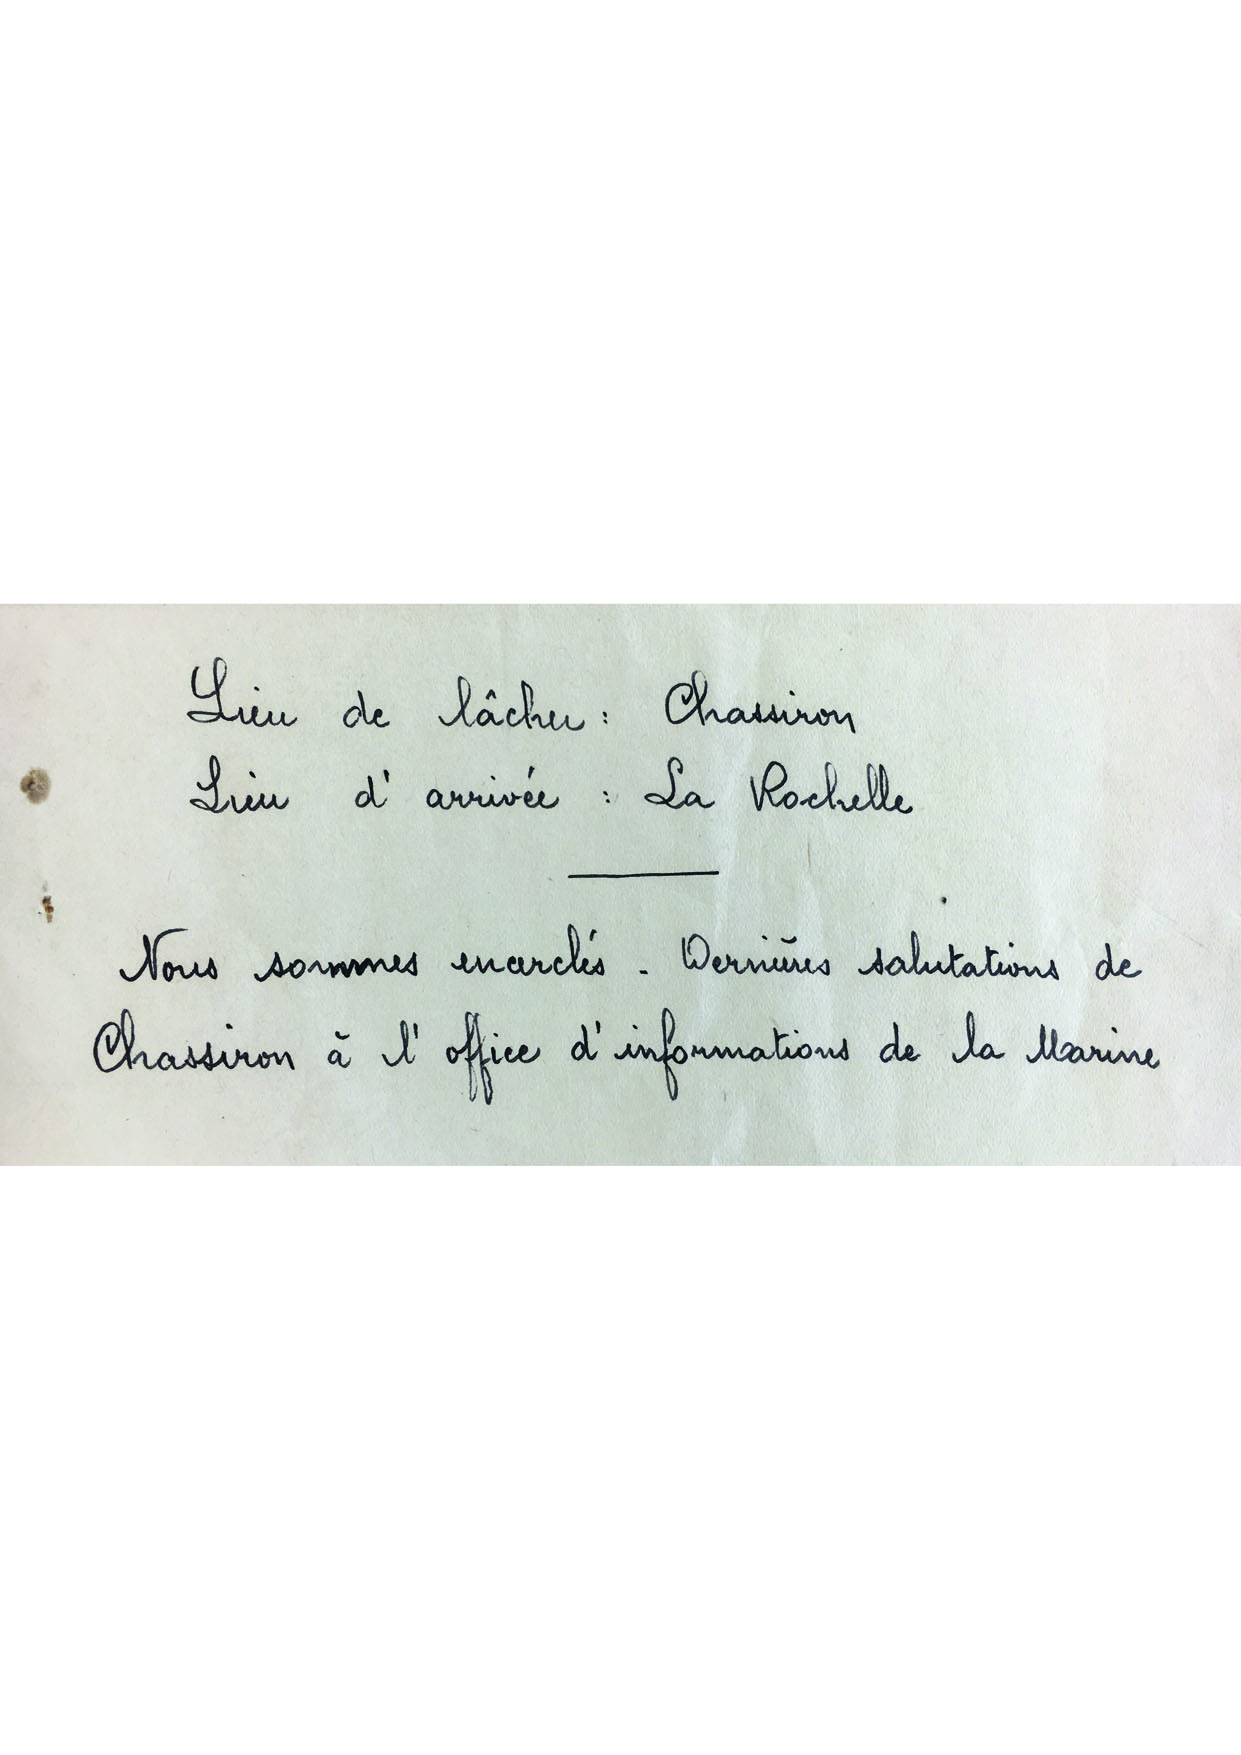 Lieu de lâcher : Chassiron
Lieu d'arrivée : La Rochelle
Nous sommes encerclés - Dernières salutations de
Chassiron à l'office d'informations de la Marine